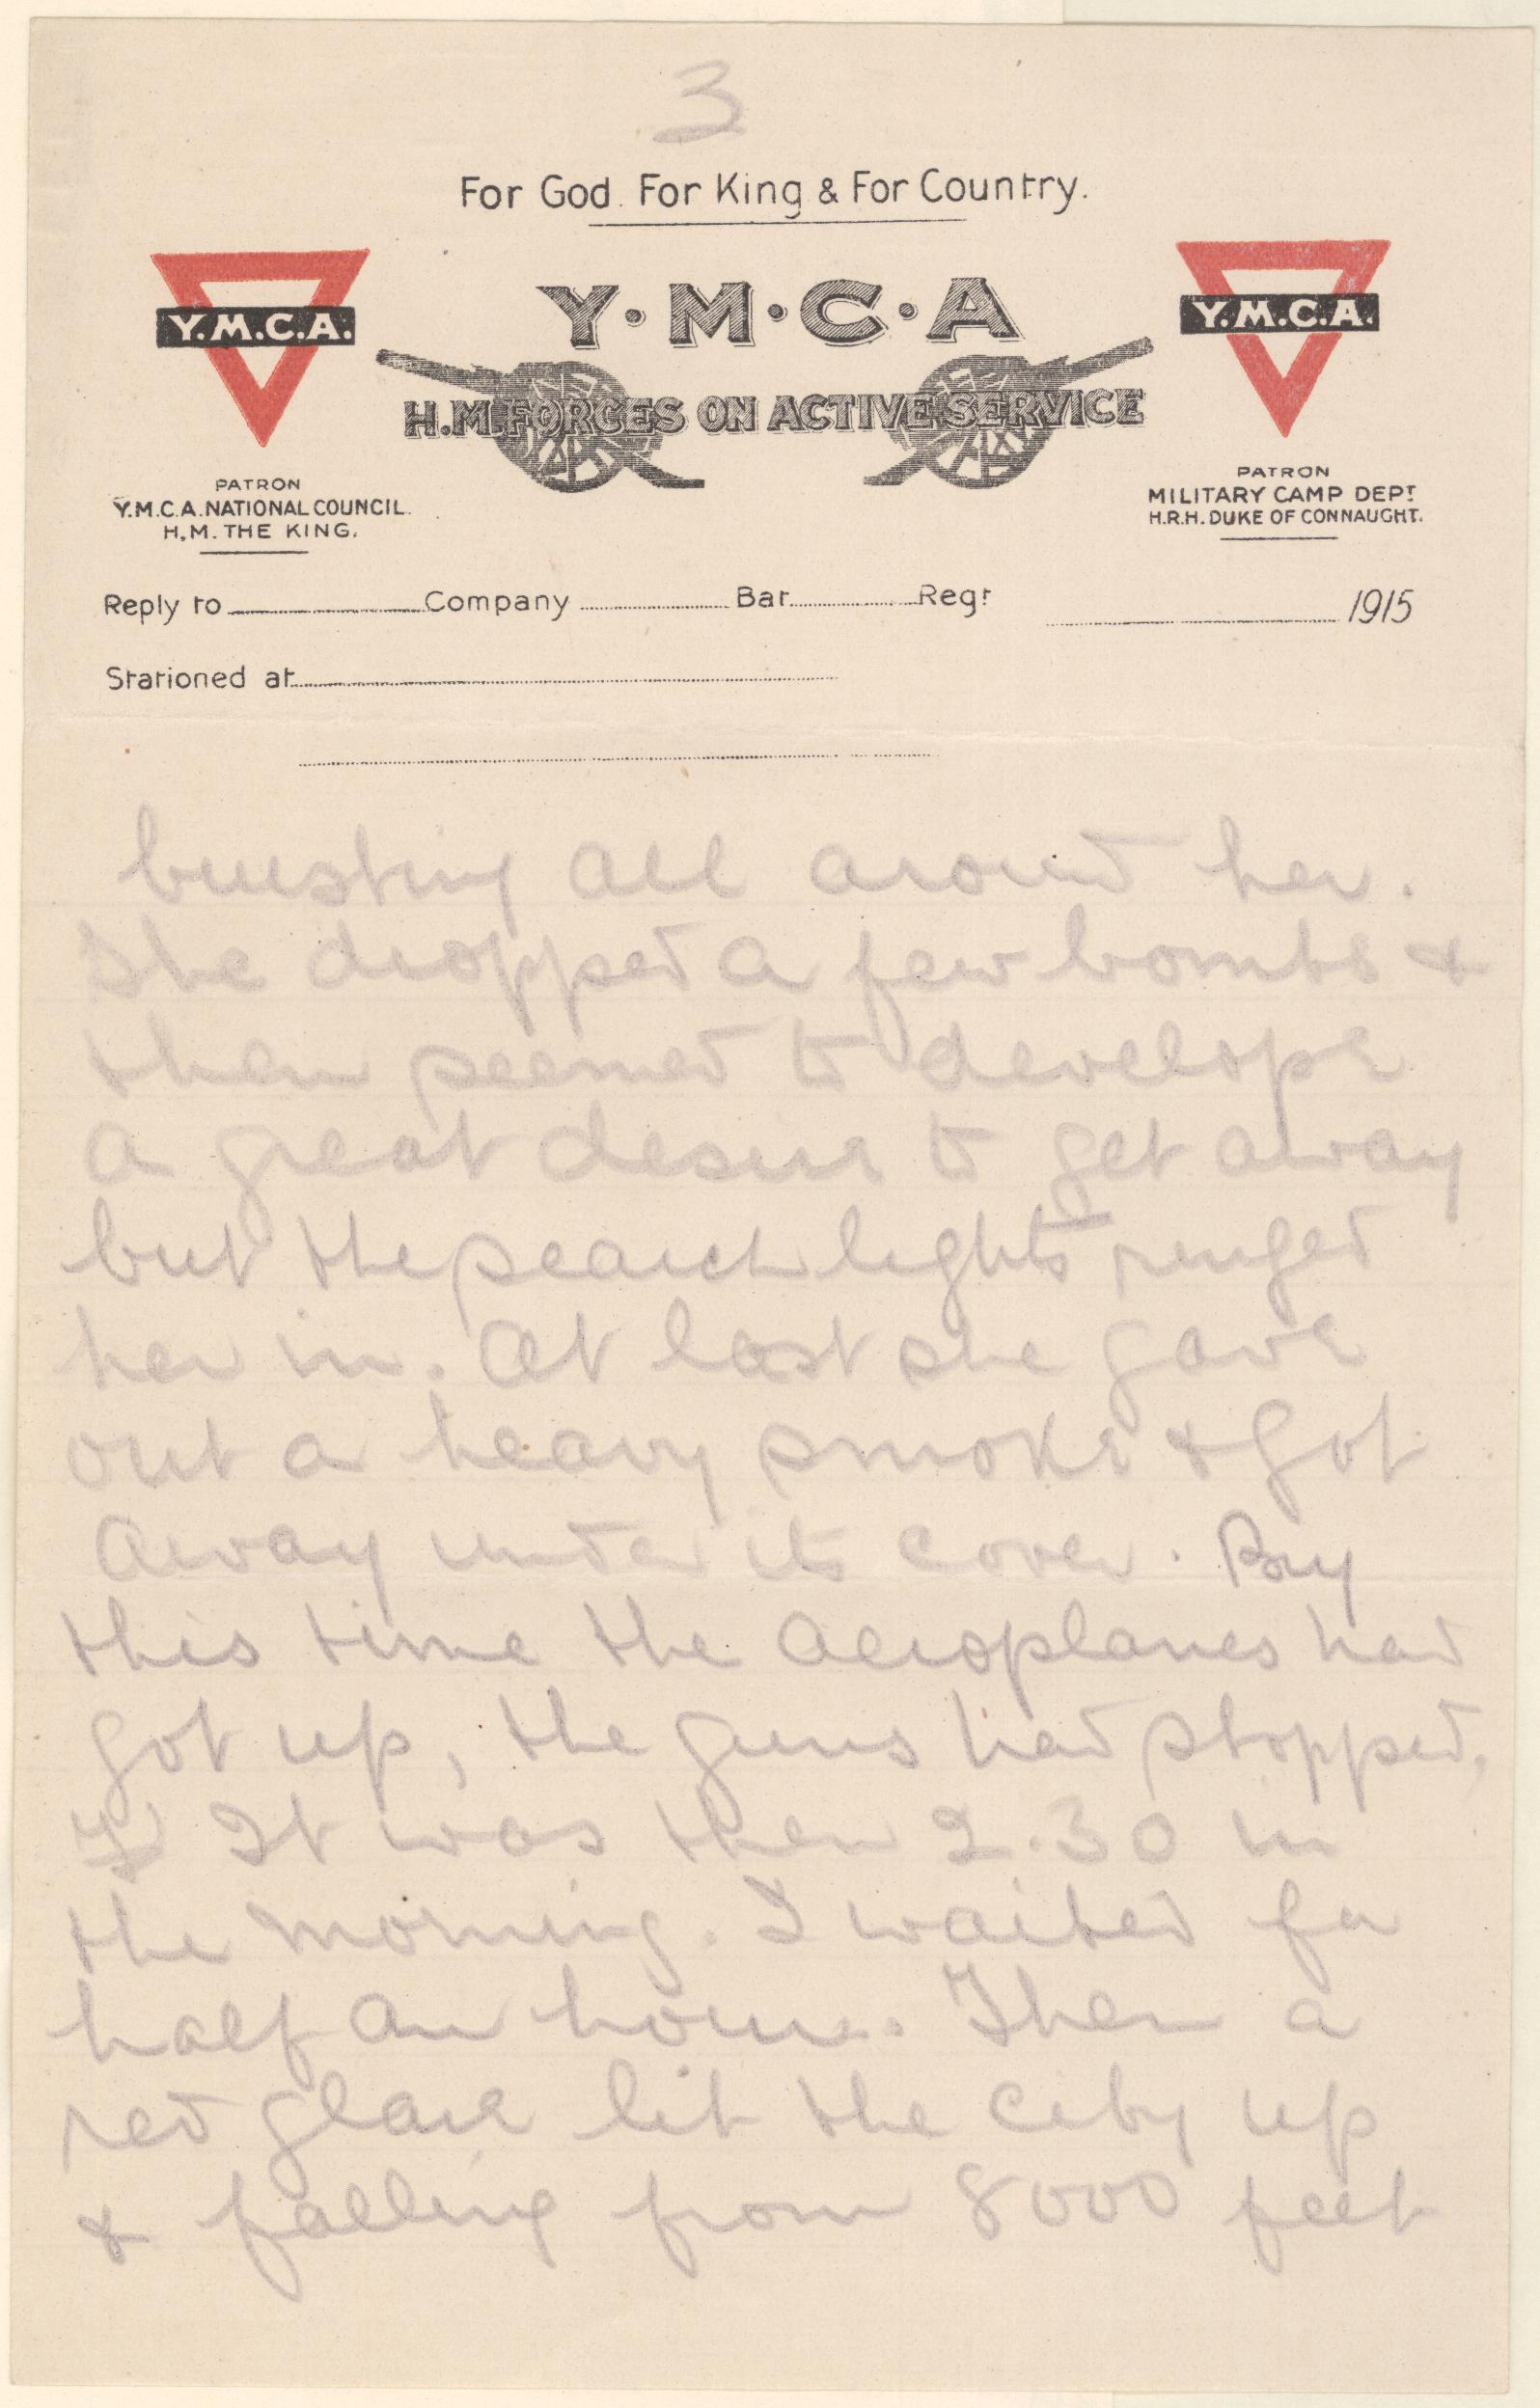 3
For God. For King & For Country.
Y.M.C.A.
Y·M·C·A
Y.M.C.A.
H.M. FORCES ON ACTIVE SERVICE
PATRON
Y.M.C.A. NATIONAL COUNCIL.
H.M. THE KING.
PATRON
MILITARY CAMP DEPT
H.R.H. DUKE OF CONNAUGHT.
Reply to Company Bat Regt 1915
Stationed at
bursting all around her.
She dropped a few bombs &
then seemed to develope
a great desire to get away
but the searchlights ringed
her in. At last she gave
out a heavy smoke & got
away under its cover. By
this time the aeroplanes had
got up, the guns had stopped.
It was then 2.30 in
the morning. I waited for
half an hour. Then a
red glare lit the city up
& falling from 8000 feet